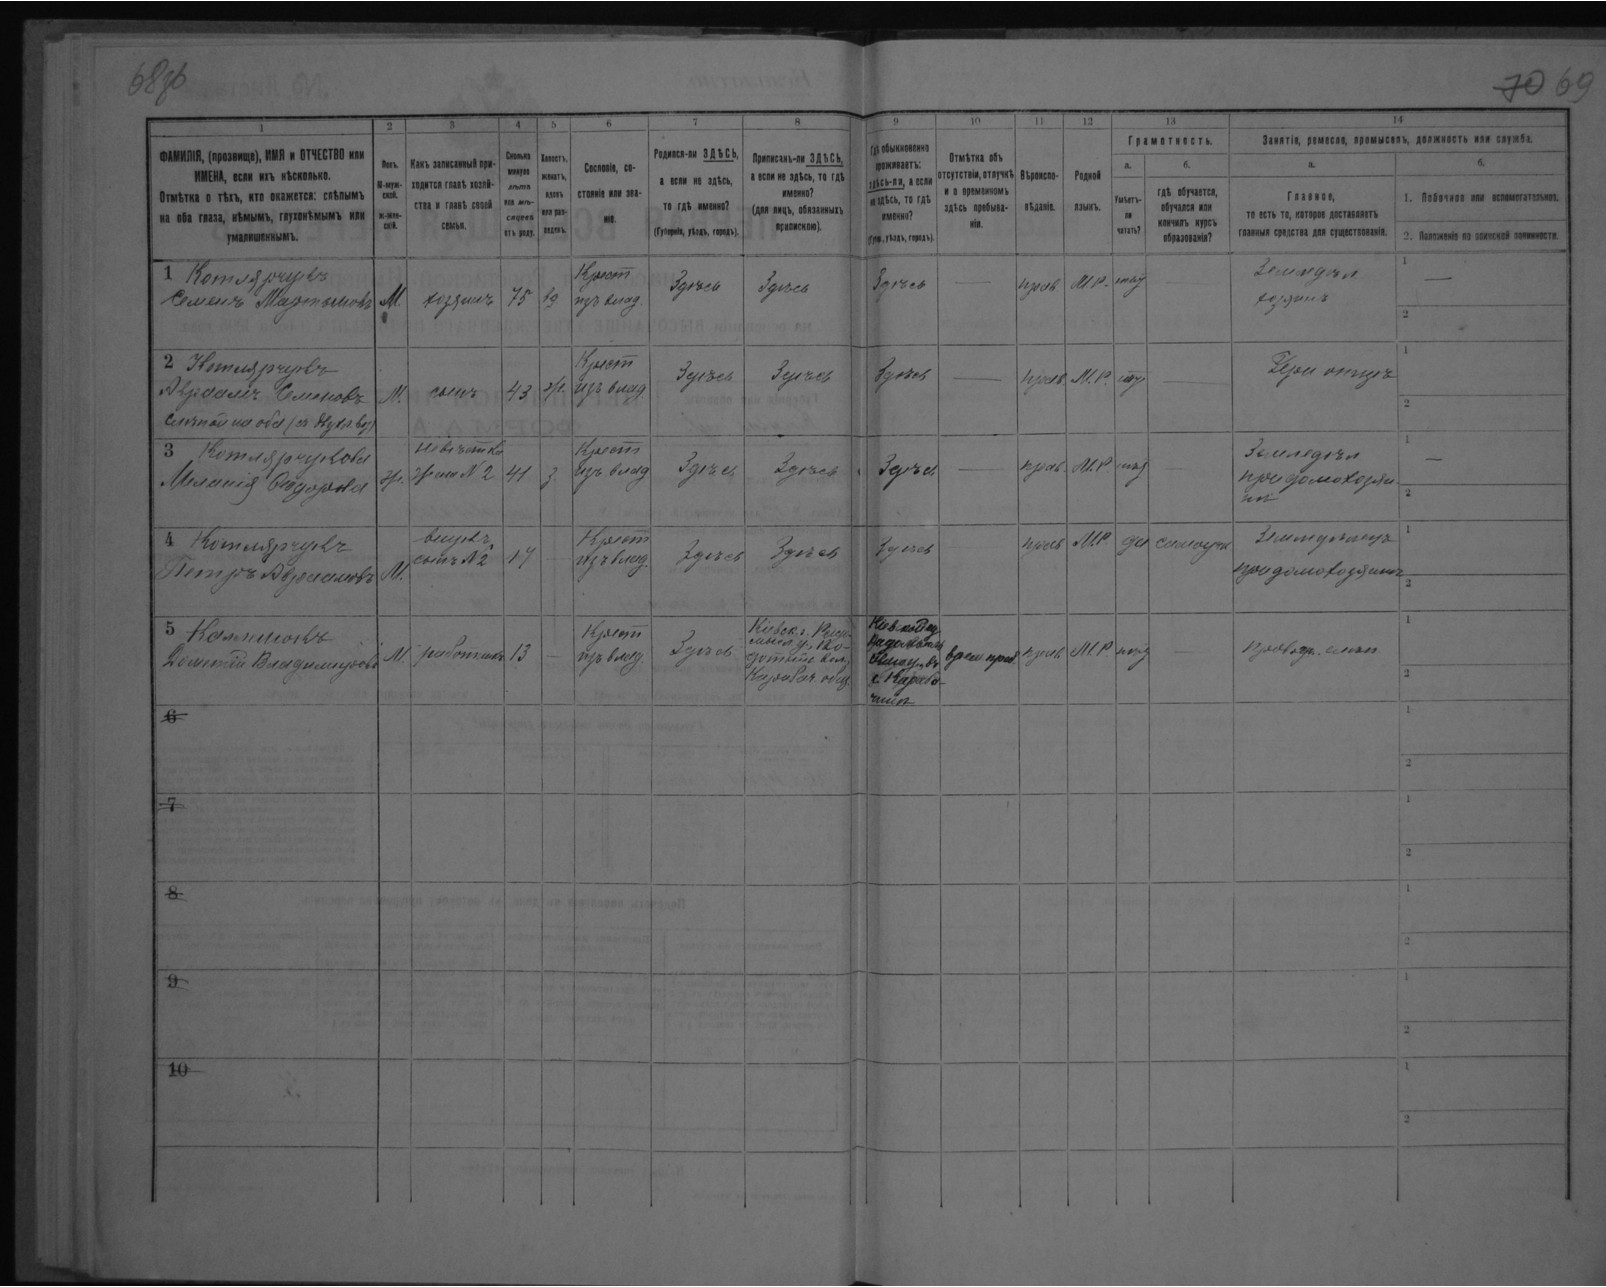 68об
70 69
1 2 3 4 5 6 7 8 9 10 11 12 13 14
ФАМИЛІЯ, (прозвище), ИМЯ и ОТЧЕСТВО или
ИМЕНА, если ихъ нѣсколько.
Отмѣтка о тѣхъ, кто окажется: слѣпымъ
на оба глаза, нѣмымъ, глухонѣмымъ или
умалишеннымъ.
Полъ.
М-муж-
ской.
Ж-жен-
скій.
Какъ записанный при-
ходится главѣ хозяй-
ства и главѣ своей
семьи.
Сколько
минуло
лѣтъ
или мѣ-
сяцевъ
отъ роду.
Холостъ,
женатъ,
вдовъ
или раз-
веденъ.
Сословіе, со-
стояніе или зва-
ніе.
Родился-ли ЗДѢСЬ,
а если не здѣсь,
то гдѣ именно?
(Губернія, уѣздъ, городъ).
Приписанъ-ли ЗДѢСЬ,
а если не здѣсь, то гдѣ
именно?
(для лицъ, обязанныхъ
припискою).
Гдѣ обыкновенно
проживаетъ:
здѣсь-ли, а если
не здѣсь, то гдѣ
именно?
(Губ., уѣздъ, городъ).
Отмѣтка объ
отсутствіи, отлучкѣ
и о временномъ
здѣсь пребыва-
ніи.
Вѣроиспо-
вѣданіе.
Родной
языкъ.
Грамотность.
а.
Умѣетъ-
ли
читать?
б.
гдѣ обучается,
обучался или
кончилъ курсъ
образованія?
Занятіе, ремесло, промыселъ, должность или служба.
а.
Главное,
то есть то, которое доставляетъ
главныя средства для существованія.
б.
1. Побочное или вспомогательное.
2. Положеніе по воинской повинности.
1 Котлярчукъ
Семенъ Мартыновъ М. хозяинъ 75 вд Крест
изъ влад. Здесь Здесь Здесь — прав М.Р. нѣт — Земледѣл
хозяинъ
1 —
2
2 Котлярчукъ
Авраамъ Семеновъ
слѣпой на оба М. сынъ 43 ж. Крест
изъ влад Здесь Здесь Здесь — прав М.Р. нѣт — При отцѣ
1
2
3 Котлярчукова
Меланія Ѳедорова ж. невѣстка
жена №2 41 з. Крест
изъ влад Здесь Здесь Здесь — прав М.Р нѣт — Земледѣл
при домохозяи-
нѣ
1 —
2
4 Котлярчукъ
Петръ Авраамовъ М. внукъ,
сынъ №2 17 — Крест
изъ влад. Здесь Здесь Здесь прав М.Р да самоучк Земледѣлецъ
при домохозяинѣ
1
2
5 Калиновъ
Дометій Владимировъ М. работникъ 13 — Крест
изъ влад. Здесь Киевск. г. Радо-
мысл. у.
Карабач. общ врем. преб. прав М.Р нѣт —
1
2
6
1
2
7
1
2
8
1
2
9
1
2
10
1
2